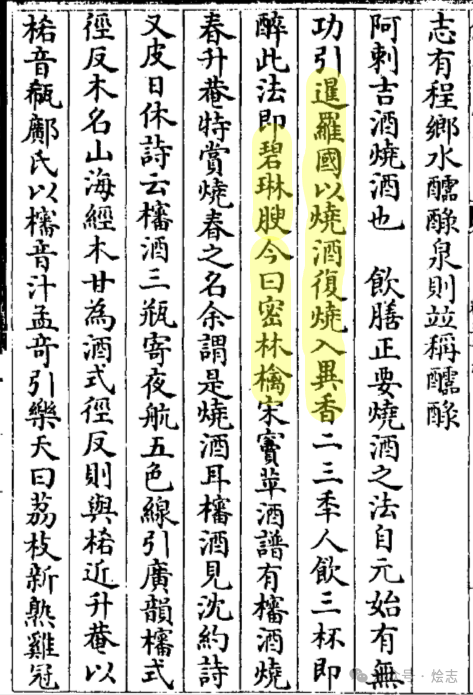 志有程鄉水醹醁泉則竝稱醹醁
阿剌吉酒燒酒也　飲膳正要燒酒之法自元始有無
功引暹羅國以燒酒復燒入異香二三年人飲三杯即
醉此法即碧琳腴今曰密林檎宋竇苹酒譜有櫧酒燒
春升菴特賞燒春之名余謂是燒酒耳櫧酒見沈約詩
又皮日休詩云櫧酒三瓶寄夜航五色線引廣韻櫧式
徑反木名山海經木甘為酒式徑反則與楉近升菴以
楉音瓻鄺氏以櫧音汁孟奇引樂天曰荔枝新熟雞冠
公众号·烩志